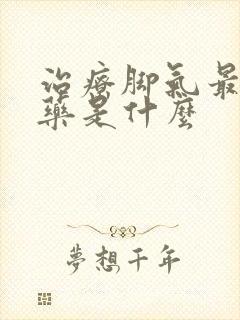 治療脚氣最
藥是什麼
夢想千年